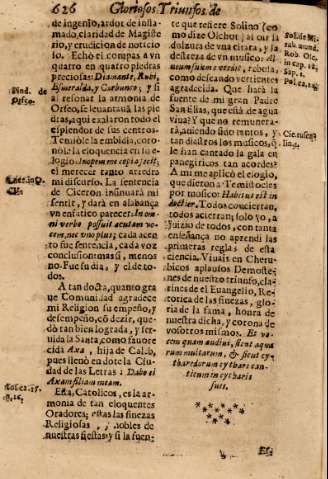 626 Gloriosos Triunfos de
de ingenio, ardor de infla-
mado, claridad de Magiste
rio, y erudicion de noticio
so. Echò el compas a vn
quarto en quatro piedras
preciosas: Diamante, Rubi,
Esmeralda, y Carbunco, y si
al resonar la armonia de
Orfeo, se levantavà las pie
dras, aqui exalaron todo el
esplendor de sus centros.
Temiòle la embidia, coro-
nòle la eloquencia en lo e-
logio. Inopem me copia fecit,
el merecer tanto arredro
mi discurso. La sentencia
de Ciceron insinuarà mi
sentir, y darà en alabança
vn enfatico parecer: In om
ni verbo possuit acutam vo-
cem, nec vno plus; cada acen
to fue sentencia, cada voz
conclusion: mas si, menos
no. Fue su dia, y el de to-
dos.
A tan docta, quanto gra
ue Comunidad agradece
mi Religion su empeño, y
desempeño, cõ dezir, que-
dò tan bien lograda, y ser-
uida la Santa, como fauore
cida Axa, hija de Caleb,
pues llenò en dote la Ciu-
dad de las Letras: Dabo ei
Axam filiam meam.
Esta, Catolicos, es la ar-
monia de tan eloquentes
Oradores; estas las finezas
Religiosas, nobles de
nuestras fiestas: y si la fuen-
Pind. de
Orfeo.
Cicer. in O-
15.
te que refiere Solino (co
mo dize Olchot) al oir la
dulçura de vna citara, y la
destreza de vn musico:
como deseando vertientes
agradecida. Que harà la
fuente de mi gran Padre
San Elias, que està de agua
viua? Y que no remunera-
rà, auiendo sido tantos, y
tan diestros los musicos, q
le han cantado la gala en
panegiricos tan acordes?
A mi me aplicò el elogio,
que dieron a Temistocles
por musico: Habitus est in
doctior. Todos conciertan,
todos aciertan; solo yo, a
juizio de todos, con tanta
enseñança no aprendi las
primeras reglas de esta
ciencia. Viuais en Cheru-
bicos aplausos Demoste-
nes de nuestro triunfo, cla-
rines de el Euangelio, Re-
torica de las finezas, glo-
ria de la fama, honra de
nuestra dicha, y corona de
vosotros mismos. Et vo-
cem quam audiui, sicut aqua
rum multarum, & sicut cy
tharedorum cytharecan-
titium in cytharis
suis.
Es-